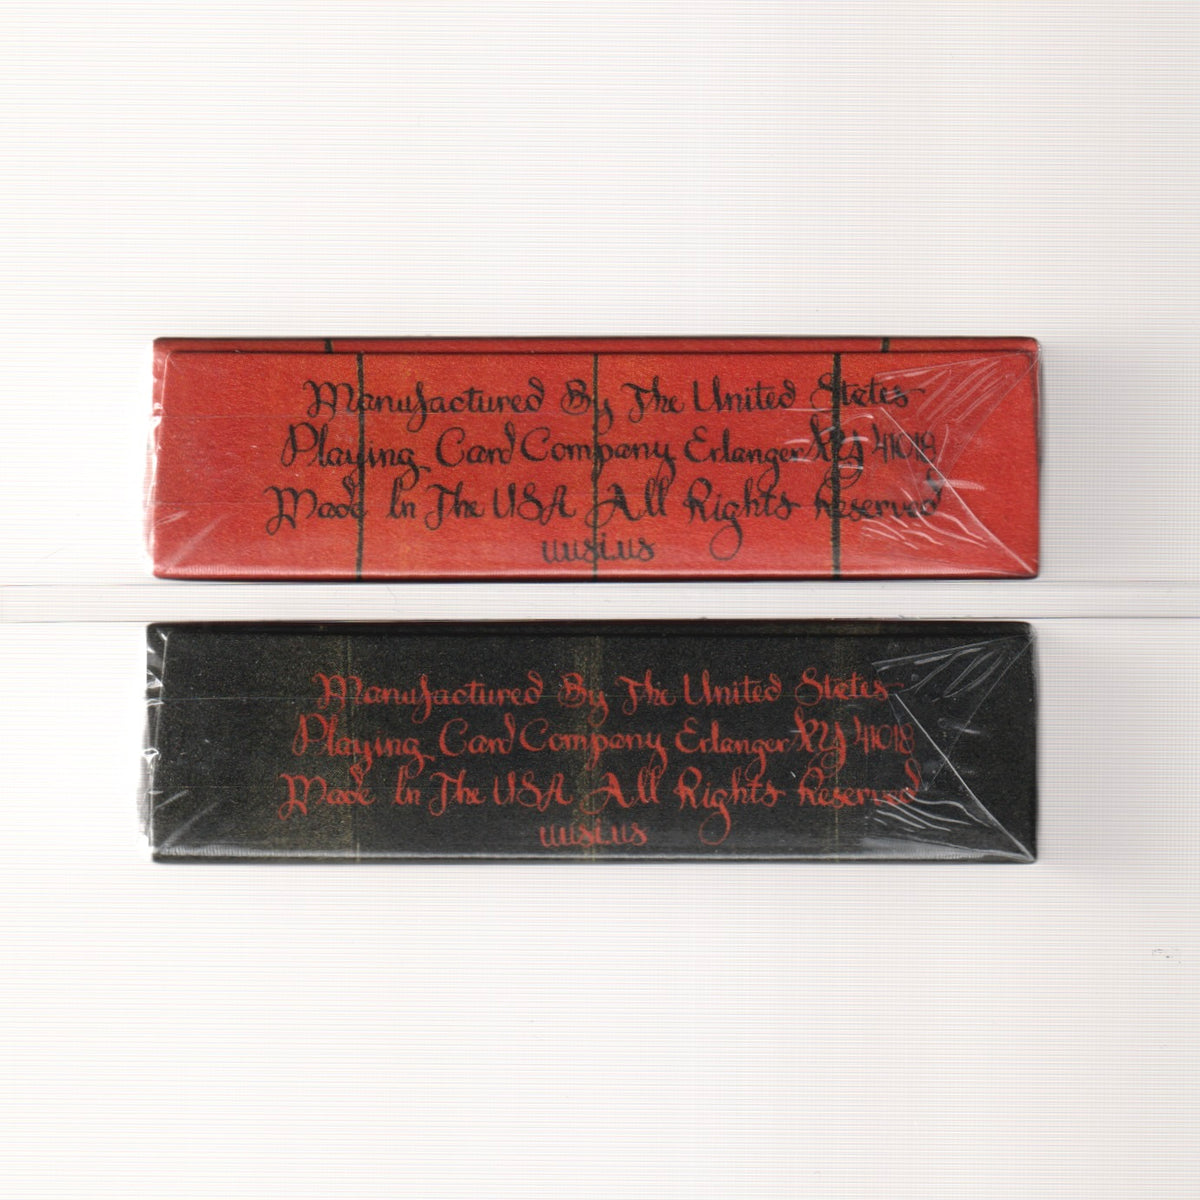 Manufactured By The United States
Playing Card Company Erlanger KY 41018
Made In The USA All Rights Reserved
uusi.us
Manufactured By The United States
Playing Card Company Erlanger KY 41018
Made In The USA All Rights Reserved
uusi.us